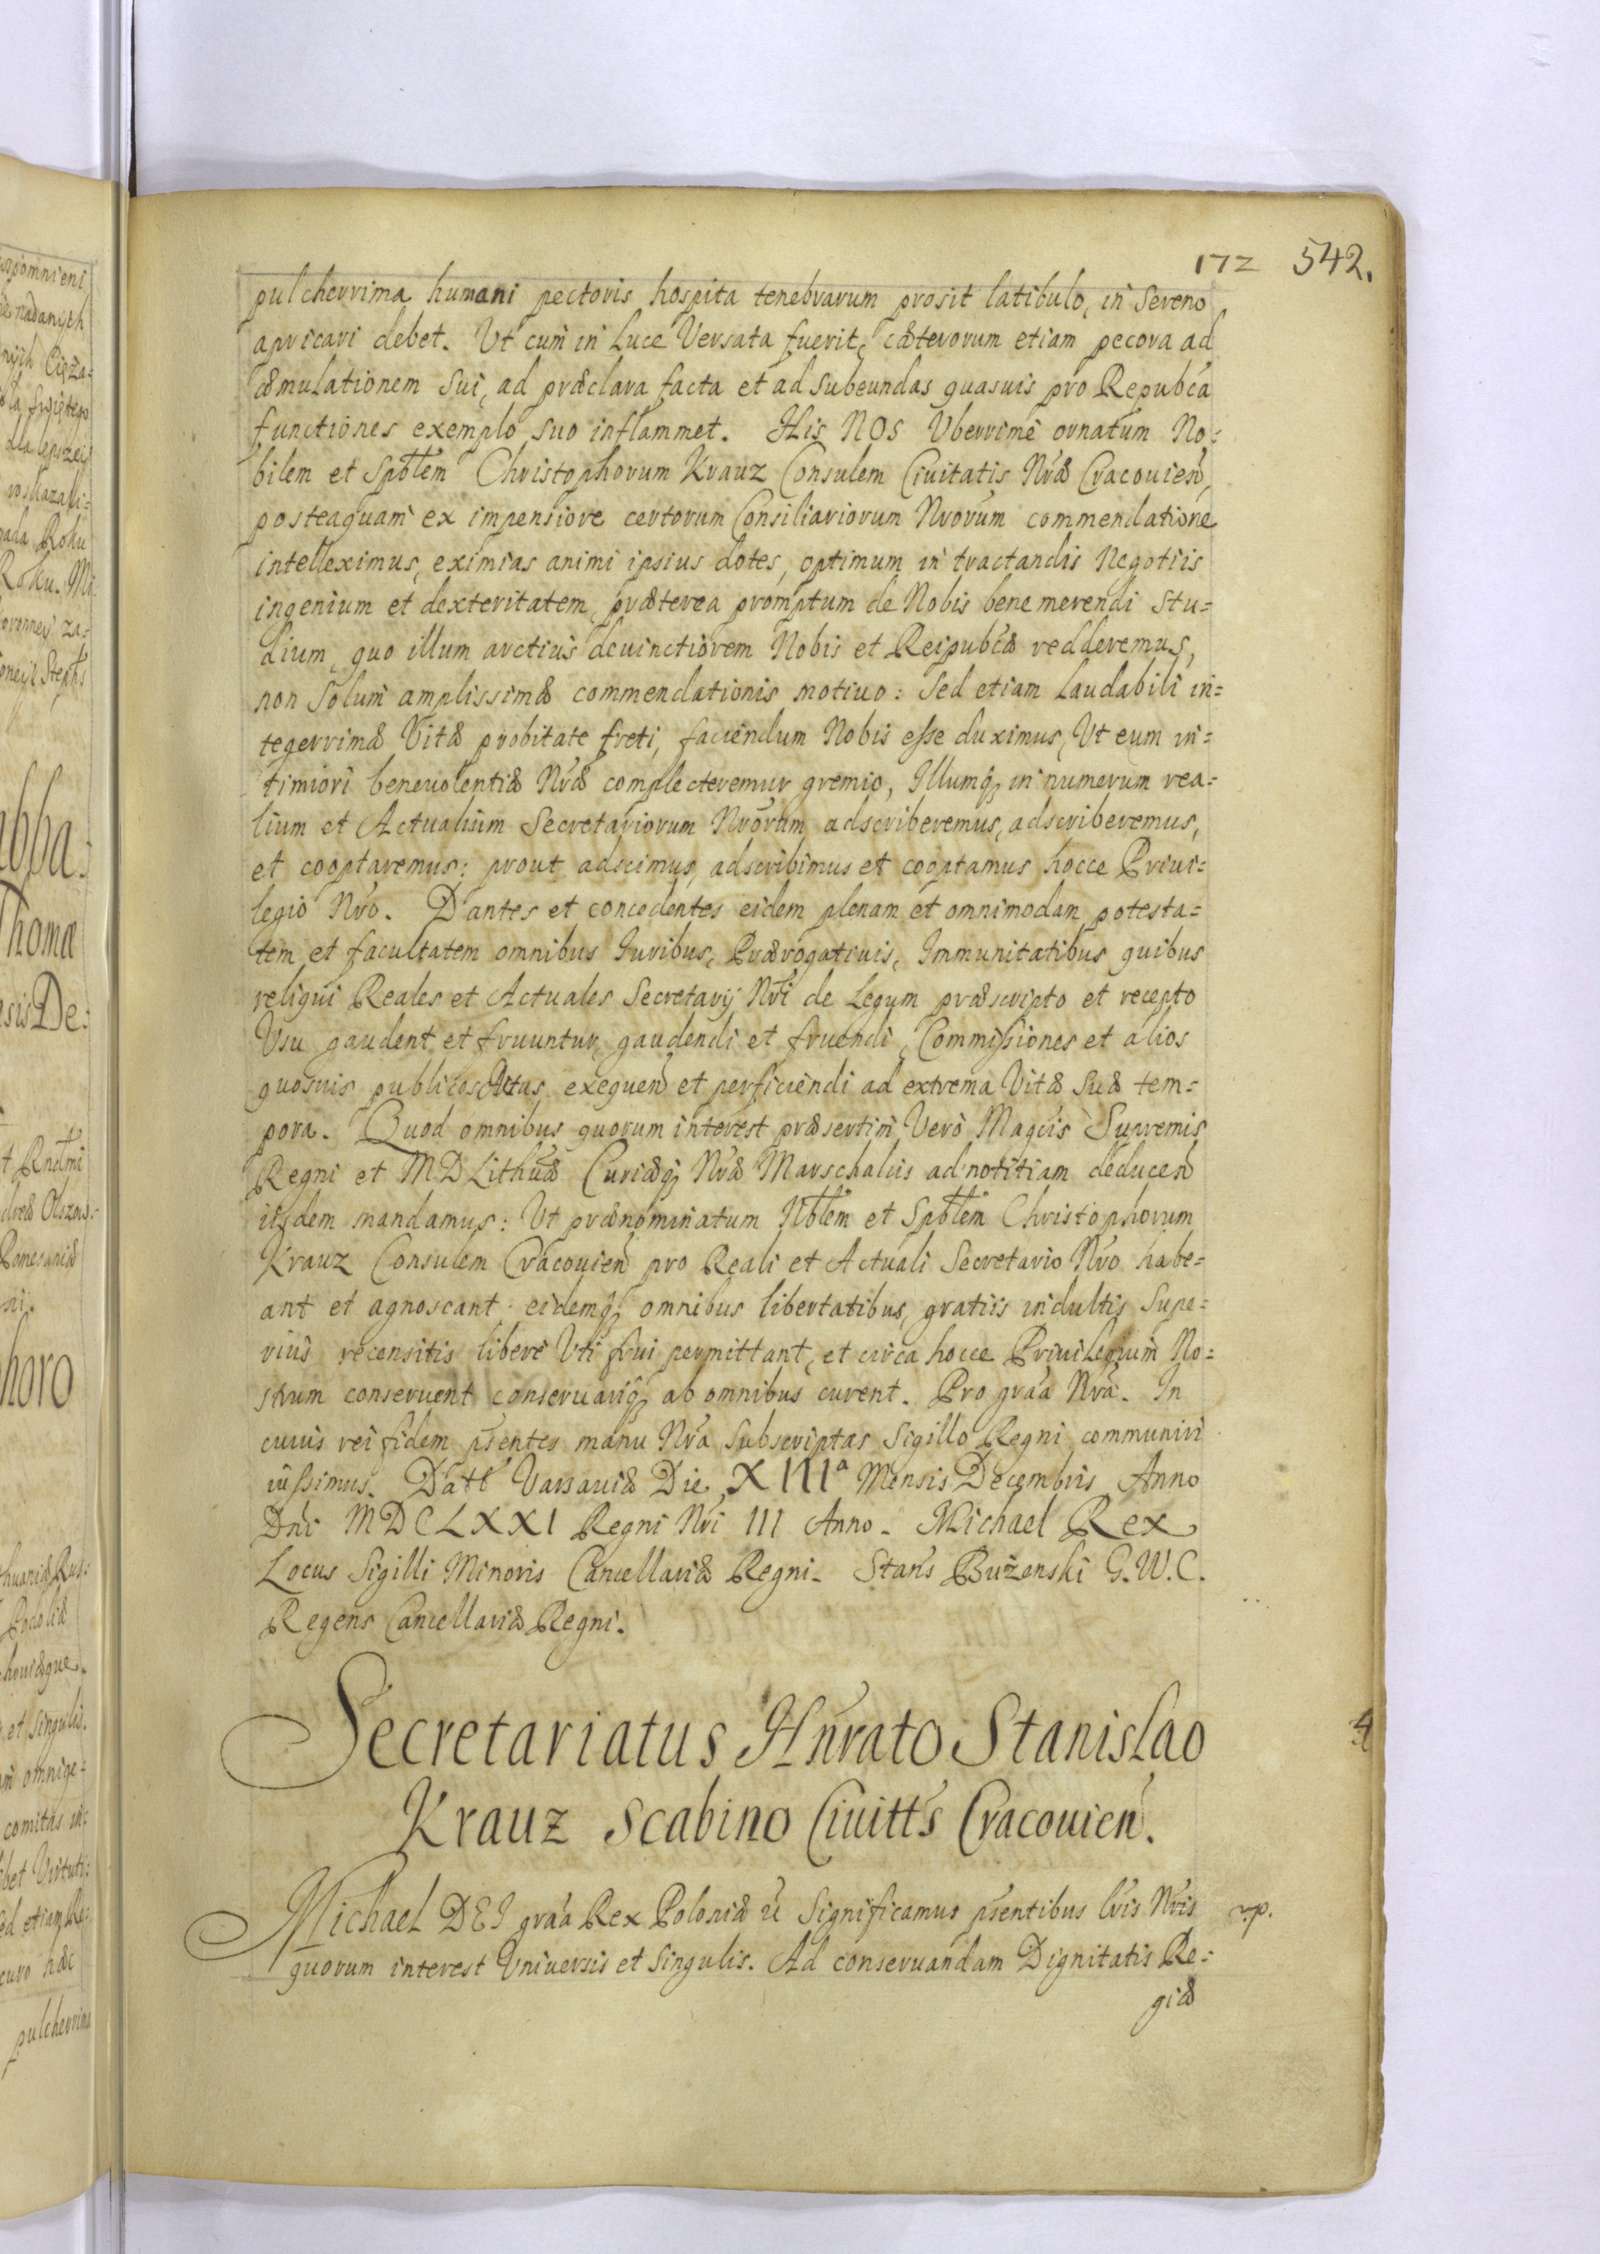 172 542.
pulcherrima humani pectoris hospita tenebrarum prosit latibulo, in sereno
apricari debet. Ut cum in Luce Versata fuerit, cæterorum etiam pecora ad
æmulationem sui, ad præclara facta et ad subeundas quasuis pro Repubca
functiones exemplo suo inflammet. His NOS Vberrime ornatum No:
bilem et Spblem Christophorum Krauz Consulem Ciuitatis Nræ Cracouien,
posteaquam ex impensiore certorum Consiliariorum Nrorum commendatione
intelleximus, eximias animi ipsius dotes, optimum in tractandis Negotiis
ingenium et dexteritatem, præterea promptum de Nobis bene merendi stu=
dium, quo illum arctius deuinctiorem Nobis et Reipubcæ redderemus,
non solum amplissimæ commendationis motiuo: sed etiam laudabili in=
tegerrimæ Vitæ probitate freti, faciendum Nobis esse duximus, Vt eum in=
timiori beneuolentiæ Nræ complecteremur gremio, Illumq in numerum rea=
lium et Actualium Secretariorum Nrorum adscriberemus, adscriberemus,
et cooptaremus: prout adscimus, adscribimus et cooptamus hocce Priui=
legio Nro. Dantes et concedentes eidem plenam et omnimodam potesta=
tem et facultatem omnibus Iuribus, Prærogatiuis, Immunitatibus quibus
reliqui Reales et Actuales Secretarij Nri de Legum præscripto et recepto
Vsu gaudent et fruuntur, gaudendi et fruendi, Commissiones et alios
quosuis publicos Actus exequen et perficiendi ad extrema Vitæ suæ tem=
pora. Quod omnibus quorum interest præsertim Vero Magcis Supremis
Regni et MD Lithuæ Curiæq Nræ Marschalcis ad notitiam deducen
iisdem mandamus: Vt prænominatum Nblem et Spblem Christophorum
Krauz Consulem Cracouien pro Reali et Actuali Secretario Nro habe=
ant et agnoscant eidemq omnibus libertatibus, gratiis indultis supe=
rius recensitis libere Vti frui permittant, et circa hocce Priuilegium No=
strum conseruent conseruariq ab omnibus curent. Pro graa Nra. In
cuius rei fidem pséntes manu Nra subscriptas Sigillo Regni communiri
iussimus. Datt Varsauiæ Die XIIIa Mensis Decembris Anno
Dni MDCLXXI Regni Nri III Anno. Michael Rex
Locus Sigilli Minoris Cancellariæ Regni. Stans Bużenski G. W. C.
Regens Cancellariæ Regni.
Secretariatus Hnrato Stanislao
Krauz Scabino Ciuitts Cracouien.
Michael DEI graa Rex Poloniæ ũ Significamus psentibus lris Nris
quorum interest Vniuersis et singulis. Ad conseruandam Dignitatis Re:
giæ